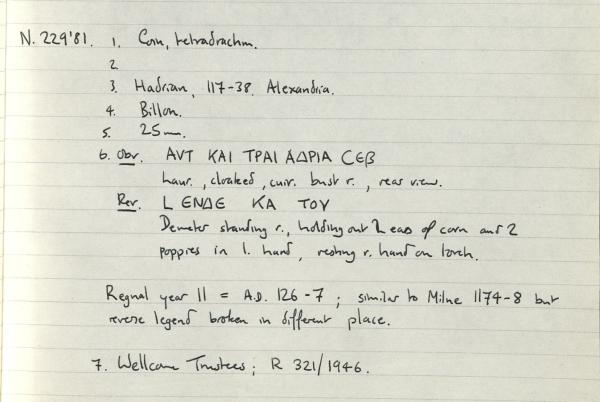 N. 229'81. 1. Coin, tetradrachm.
2
3. Hadrian, 117-38. Alexandria.
4. Billon.
5. 25mm.
6. Obv. ΑVΤ ΚΑΙ ΤΡΑΙ ΑΔΡΙΑ CΕΒ
laur., cloaked, cuir. bust r., rear view.
Rev. L ΕΝΔΕ ΚΑ ΤΟV
Demeter standing r., holding out 2 ears of corn and 2
poppies in l. hand, resting r. hand on torch.
Regnal year 11 = A.D. 126-7; similar to Milne 1174-8 but
reverse legend broken in different place.
7. Wellcome Trustees; R 321/1946.